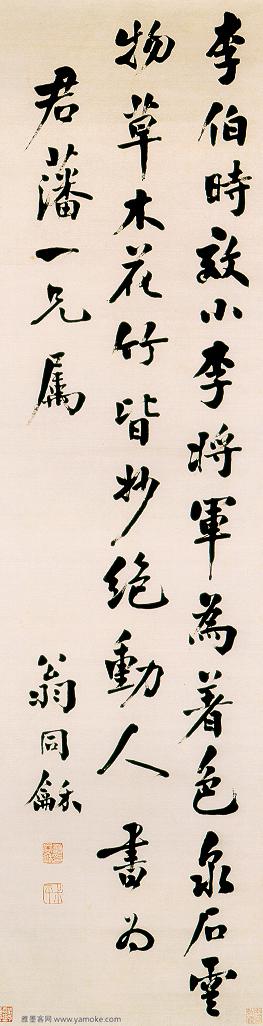 李伯時效小李將軍為著色泉石雲
物草木花竹皆妙絕動人 書為
君藩一兄屬
翁同龢
雅墨客网 www.yamoke.com